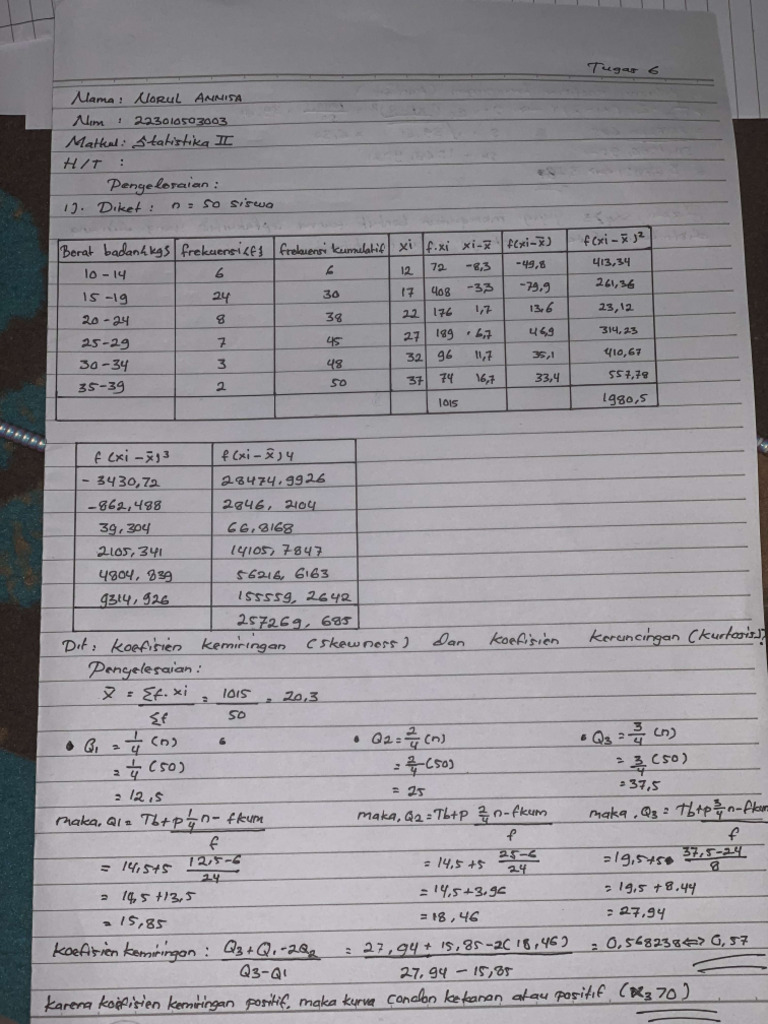 Tugas 6
Nama : NORUL ANNISA
Nim : 223010503003
Matkul : Statistika II
H/T :
Pengelesaian :
1). Diket : n = 50 siswa
Berat badan (kg) frekuensi (f) frekuensi kumulatif xi f.xi xi-x̄ f(xi-x̄) f(xi-x̄)²
10-14 6 6 12 72 -8,3 -49,8 413,34
15-19 24 30 17 408 -3,3 -79,9 261,36
20-24 8 38 22 176 1,7 13,6 23,12
25-29 7 45 27 189 6,7 46,9 314,23
30-34 3 48 32 96 11,7 35,1 410,67
35-39 2 50 37 74 16,7 33,4 557,78
1015 1980,5
f(xi-x̄)³ f(xi-x̄)4
-3430,72 28474,9926
-862,488 2846,2104
39,304 66,8168
2105,341 14105,7847
4804,839 56216,6163
9314,926 155559,2642
257269,685
Dit : koefisien kemiringan (skewness) dan koefisien keruncingan (kurtosis)?
Pengelesaian :
x̄ = Σf.xi / Σf = 1015 / 50 = 20,3
• Q1 = 1/4 (n) • Q2 = 2/4 (n) • Q3 = 3/4 (n)
= 1/4 (50) = 2/4 (50) = 3/4 (50)
= 12,5 = 25 = 37,5
maka, Q1 = Tb+p 1/4 n - fkum / f maka, Q2 = Tb+p 2/4 n - fkum / f maka, Q3 = Tb+p 3/4 n - fkum / f
= 14,5+5 12,5-6 / 24 = 14,5+5 25-6 / 24 = 19,5+5 • 37,5-24 / 8
= 14,5+13,5 = 14,5+3,96 = 19,5+8.44
= 15,85 = 18,46 = 27,94
koefisien kemiringan : Q3+Q1-2Q2 / Q3-Q1 = 27,94 + 15,85-2(18,46) / 27,94 - 15,85 = 0,568238 ⇔ 0,57
karena koefisien kemiringan positif, maka kurva condon kekanan atau positif (α3 > 0)